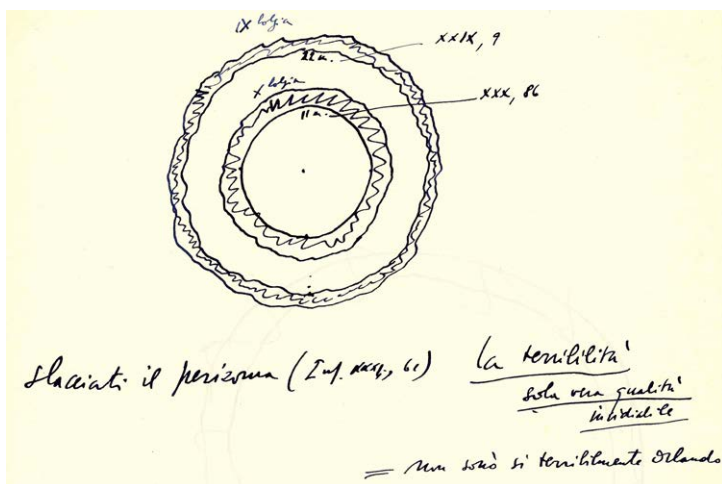 IX bolgia
XXIX, 9
22 m.
X bolgia
XXX, 86
11 m.
slacciati il perizoma (Inf. XXXI, 61)
la terribilità
sola vera qualità
invidiabile
= non sonò sì terribilmente Orlando